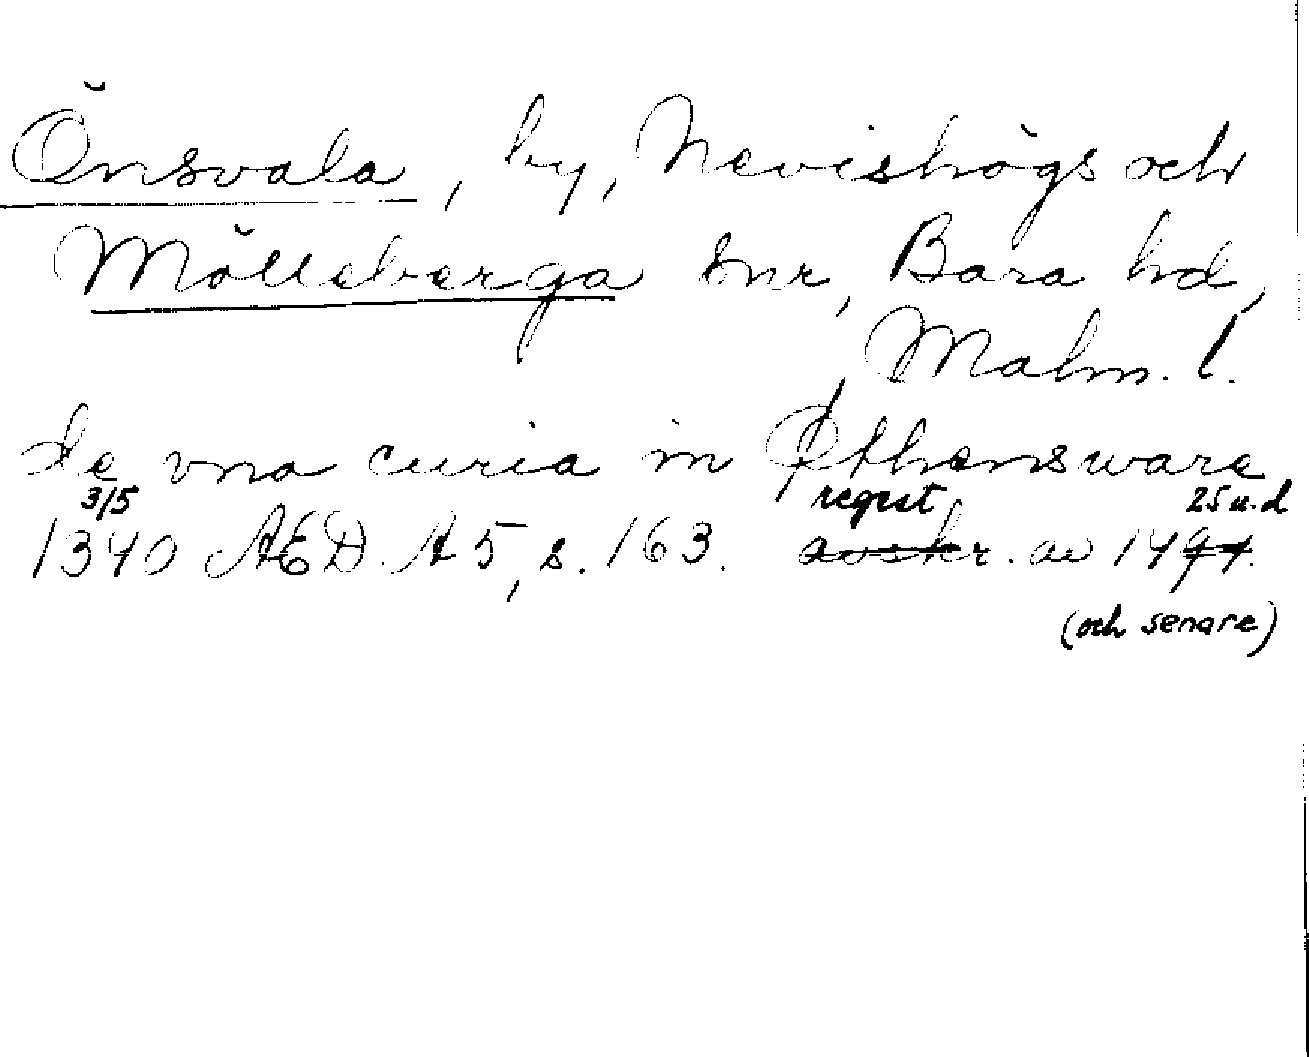 Önsvala, by, Nevishögs och
Mölleberga snr, Bara hd,
Malm. l.
de vna curia in Øthensware
3/5 regest 25 u.d
1340 AED A5, s. 163. avskr. av 1494.
(och senare)